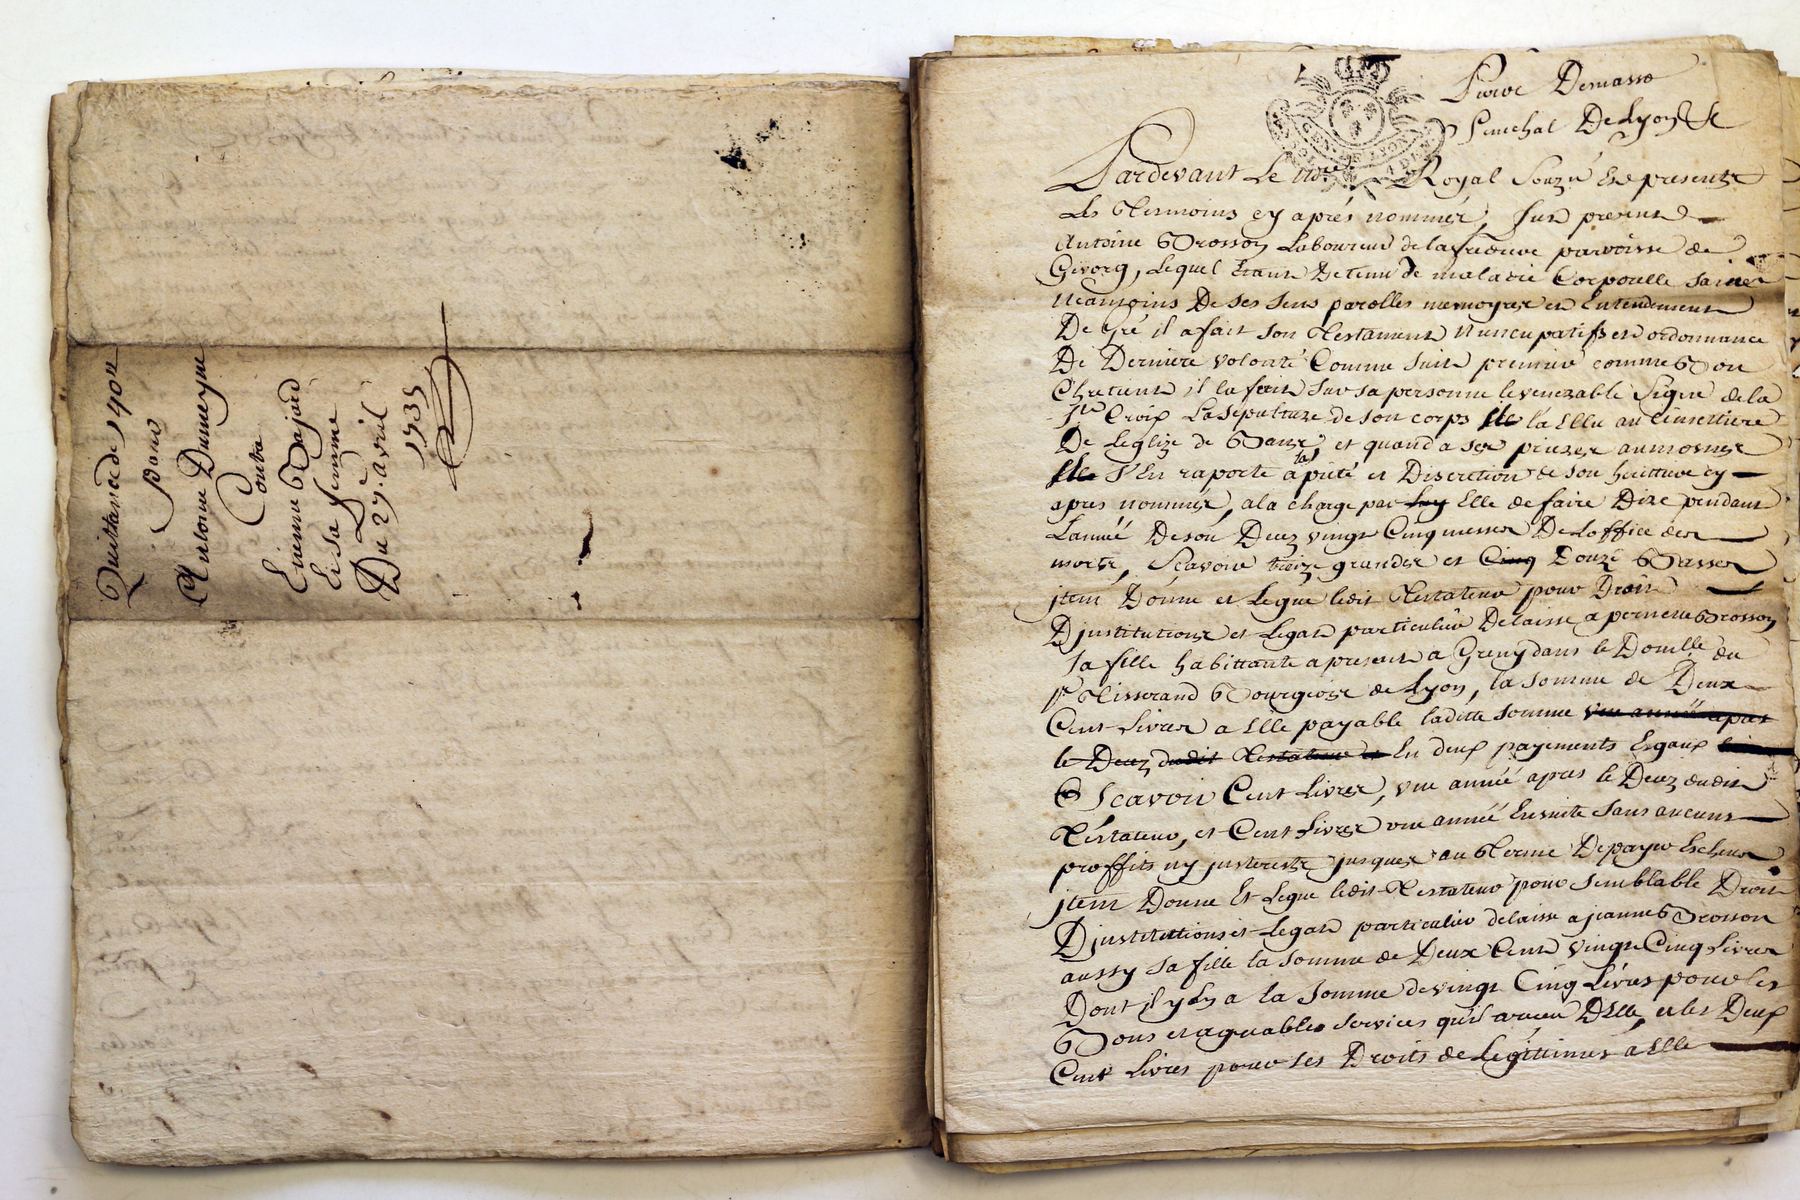 Quittance de 140 ll
pour
Antoine Dumeyne
Contre
Etienne Bajard
et sa femme
Du 27e. avril
1735
Pierre Demasso
Senechal De Lyon &c
GEN. DE LYON
Pardevant Le no.re Royal Souz.né Et presents
Les Temoins cy après nommér, fut present
Antoine Brosson Laboureur de la parroisse de
Givorg, Lequel Etant Detenu de maladie Corporelle saine
Neamoins De ses sens parolles memoyres et Entendement
De gré il a fait son Testament Nuncupatif et ordonnance
De Derniere volonté Comme suit premier comme Bon
Chretient il la fait sur sa personne le venerable Signe de la
Ste Croix La sepulture de son corps Elle l'a Ellu au Cimettiere
De Leglize de Bans, et quand a ses pieuzes aumosnes
Elle S'En raporte a la pieté et Discretion de son heritiere cy
apres nommér, a la charge par luy Elle de faire Dire pendant
L'année De son Decez vingt Cinq messes De Loffice des
morts, Scavoir treize grandes et Cinq Douze Basses
jtem Donne et Legue ledit Testateur pour Droit
D'justitutions et Legat particulier Delaisse a pernette Brosson
sa fille habittante a present a Greny dans le Domille du
sr Tisserand Bourgeois de Lyon, la somme de Deux
Cent Livres a Elle payable laditte somme vne année apres
le Decez dudit Testateur et En deux payements Egaux
Scavoir Cent Livres, vne année apres le Decez dudit
Testateur, et Cent Livres vne année Ensuite sans aucuns
proffits ny justerests jusques au Terme De payer Escheus
jtem Donne Et Legue ledit Testateur pour semblable Droit
D'justitutions et Legat particulier delaisse a jeanne Brosson
aussy sa fille la somme de Deux Cent vingt Cinq Livres
Dont il y En a la somme de vingt Cinq Livres pour les
Bons et agreables services qu'il a receu D'Elle, et les Deux
Cent Livres pour ses Droits de Legittimes a Elle